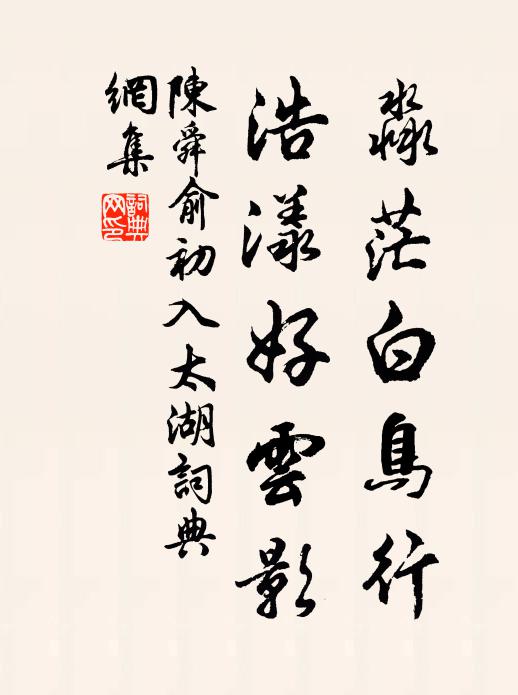 淼茫白鳥行
浩漾好雲影
陳舜俞初入太湖詞典
網集
詞典網印